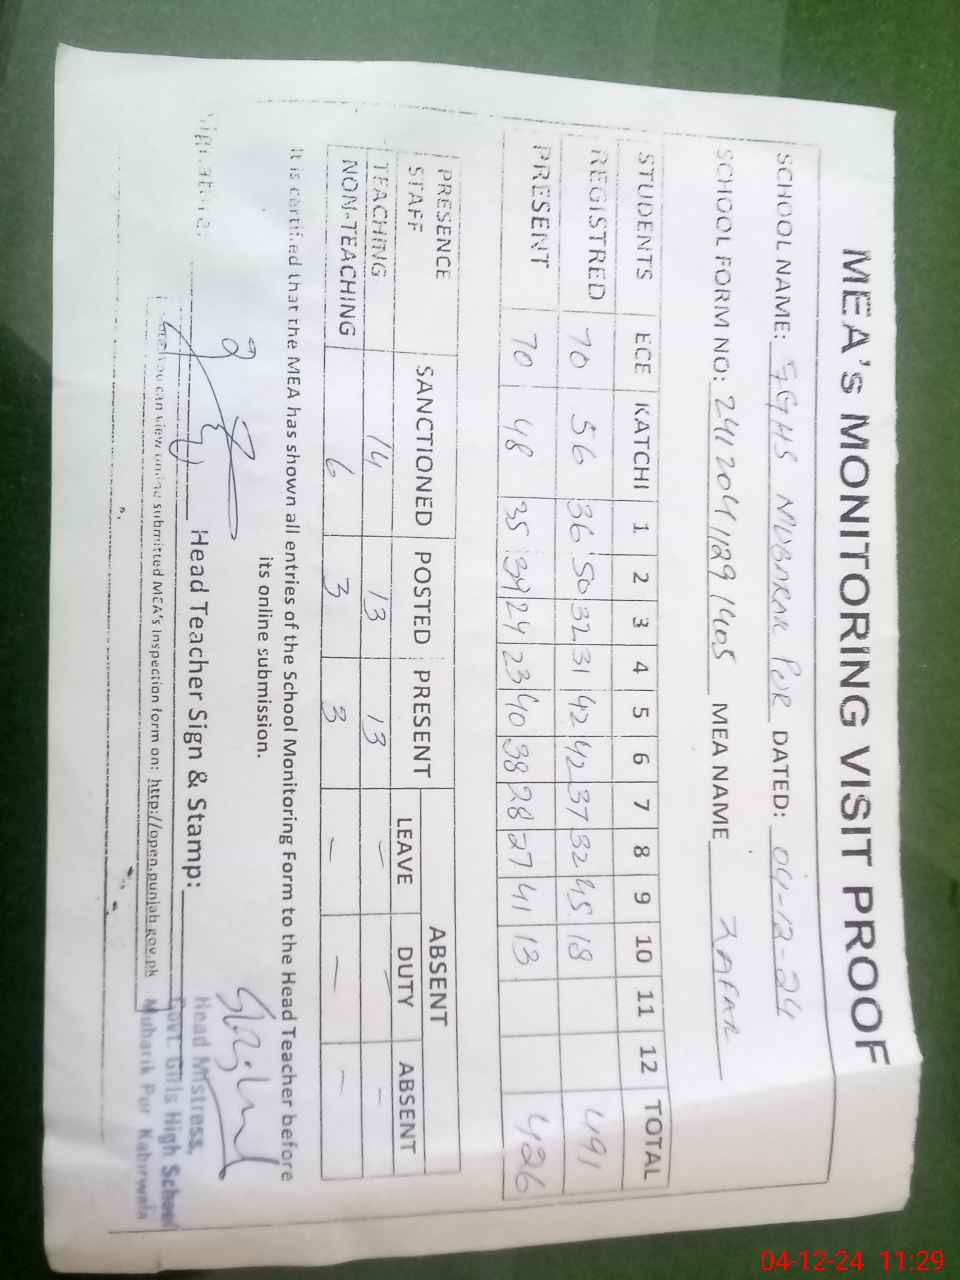 MEA's MONITORING VISIT PROOF
SCHOOL NAME: GGHS MUBARAK PUR DATED: 04-12-24
SCHOOL FORM NO: 24120411291405 MEA NAME ZAFAR
STUDENTS ECE KATCHI 1 2 3 4 5 6 7 8 9 10 11 12 TOTAL
REGISTRED 70 56 36 50 32 31 42 42 37 32 45 18 491
PRESENT 70 48 35 39 24 23 40 38 28 27 41 13 426
PRESENCE STAFF SANCTIONED POSTED PRESENT ABSENT
LEAVE DUTY ABSENT
TEACHING 14 13 13 - - -
NON-TEACHING 6 3 3 - - -
It is certified that the MEA has shown all entries of the School Monitoring Form to the Head Teacher before
its online submission.
Signature: Head Teacher Sign & Stamp:
Head Mistress,
Govt. Girls High School
Mubarik Pur Kabirwala
you can view online submitted MEA's Inspection form on: http://open.punjab.gov.pk
04-12-24 11:29